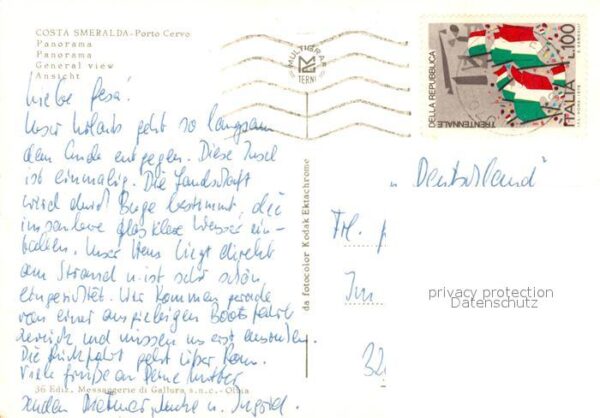 COSTA SMERALDA - Porto Cervo
Panorama
Panorama
General view
Ansicht
Liebe Gesa!
Unser Urlaub geht so langsam
dem Ende entgegen. Diese Insel
ist einmalig. Die Landschaft
wird durch Berge bestimmt, die
immer glasklare Wasser ein-
Unser Haus liegt direkt
am Strand u. ist sehr schön
eingerichtet. Wir kommen gerade
von einer ausgiebigen Bootsfahrt
zurück und müssen uns erst
Die Rückfahrt geht über Rom.
Viele Grüße an Deine Mutter
36 Ediz. Messaggerie di Gallura s.n.c. - Olbia
senden Dietmar, u. Ingrid.
da fotocolor Kodak Ektachrome
MULTIGRAF
TERNI
TRENTENNALE
DELLA REPUBBLICA
ITALIA L.100
" Deutschland "
Frl.
Im
32
privacy protection
Datenschutz